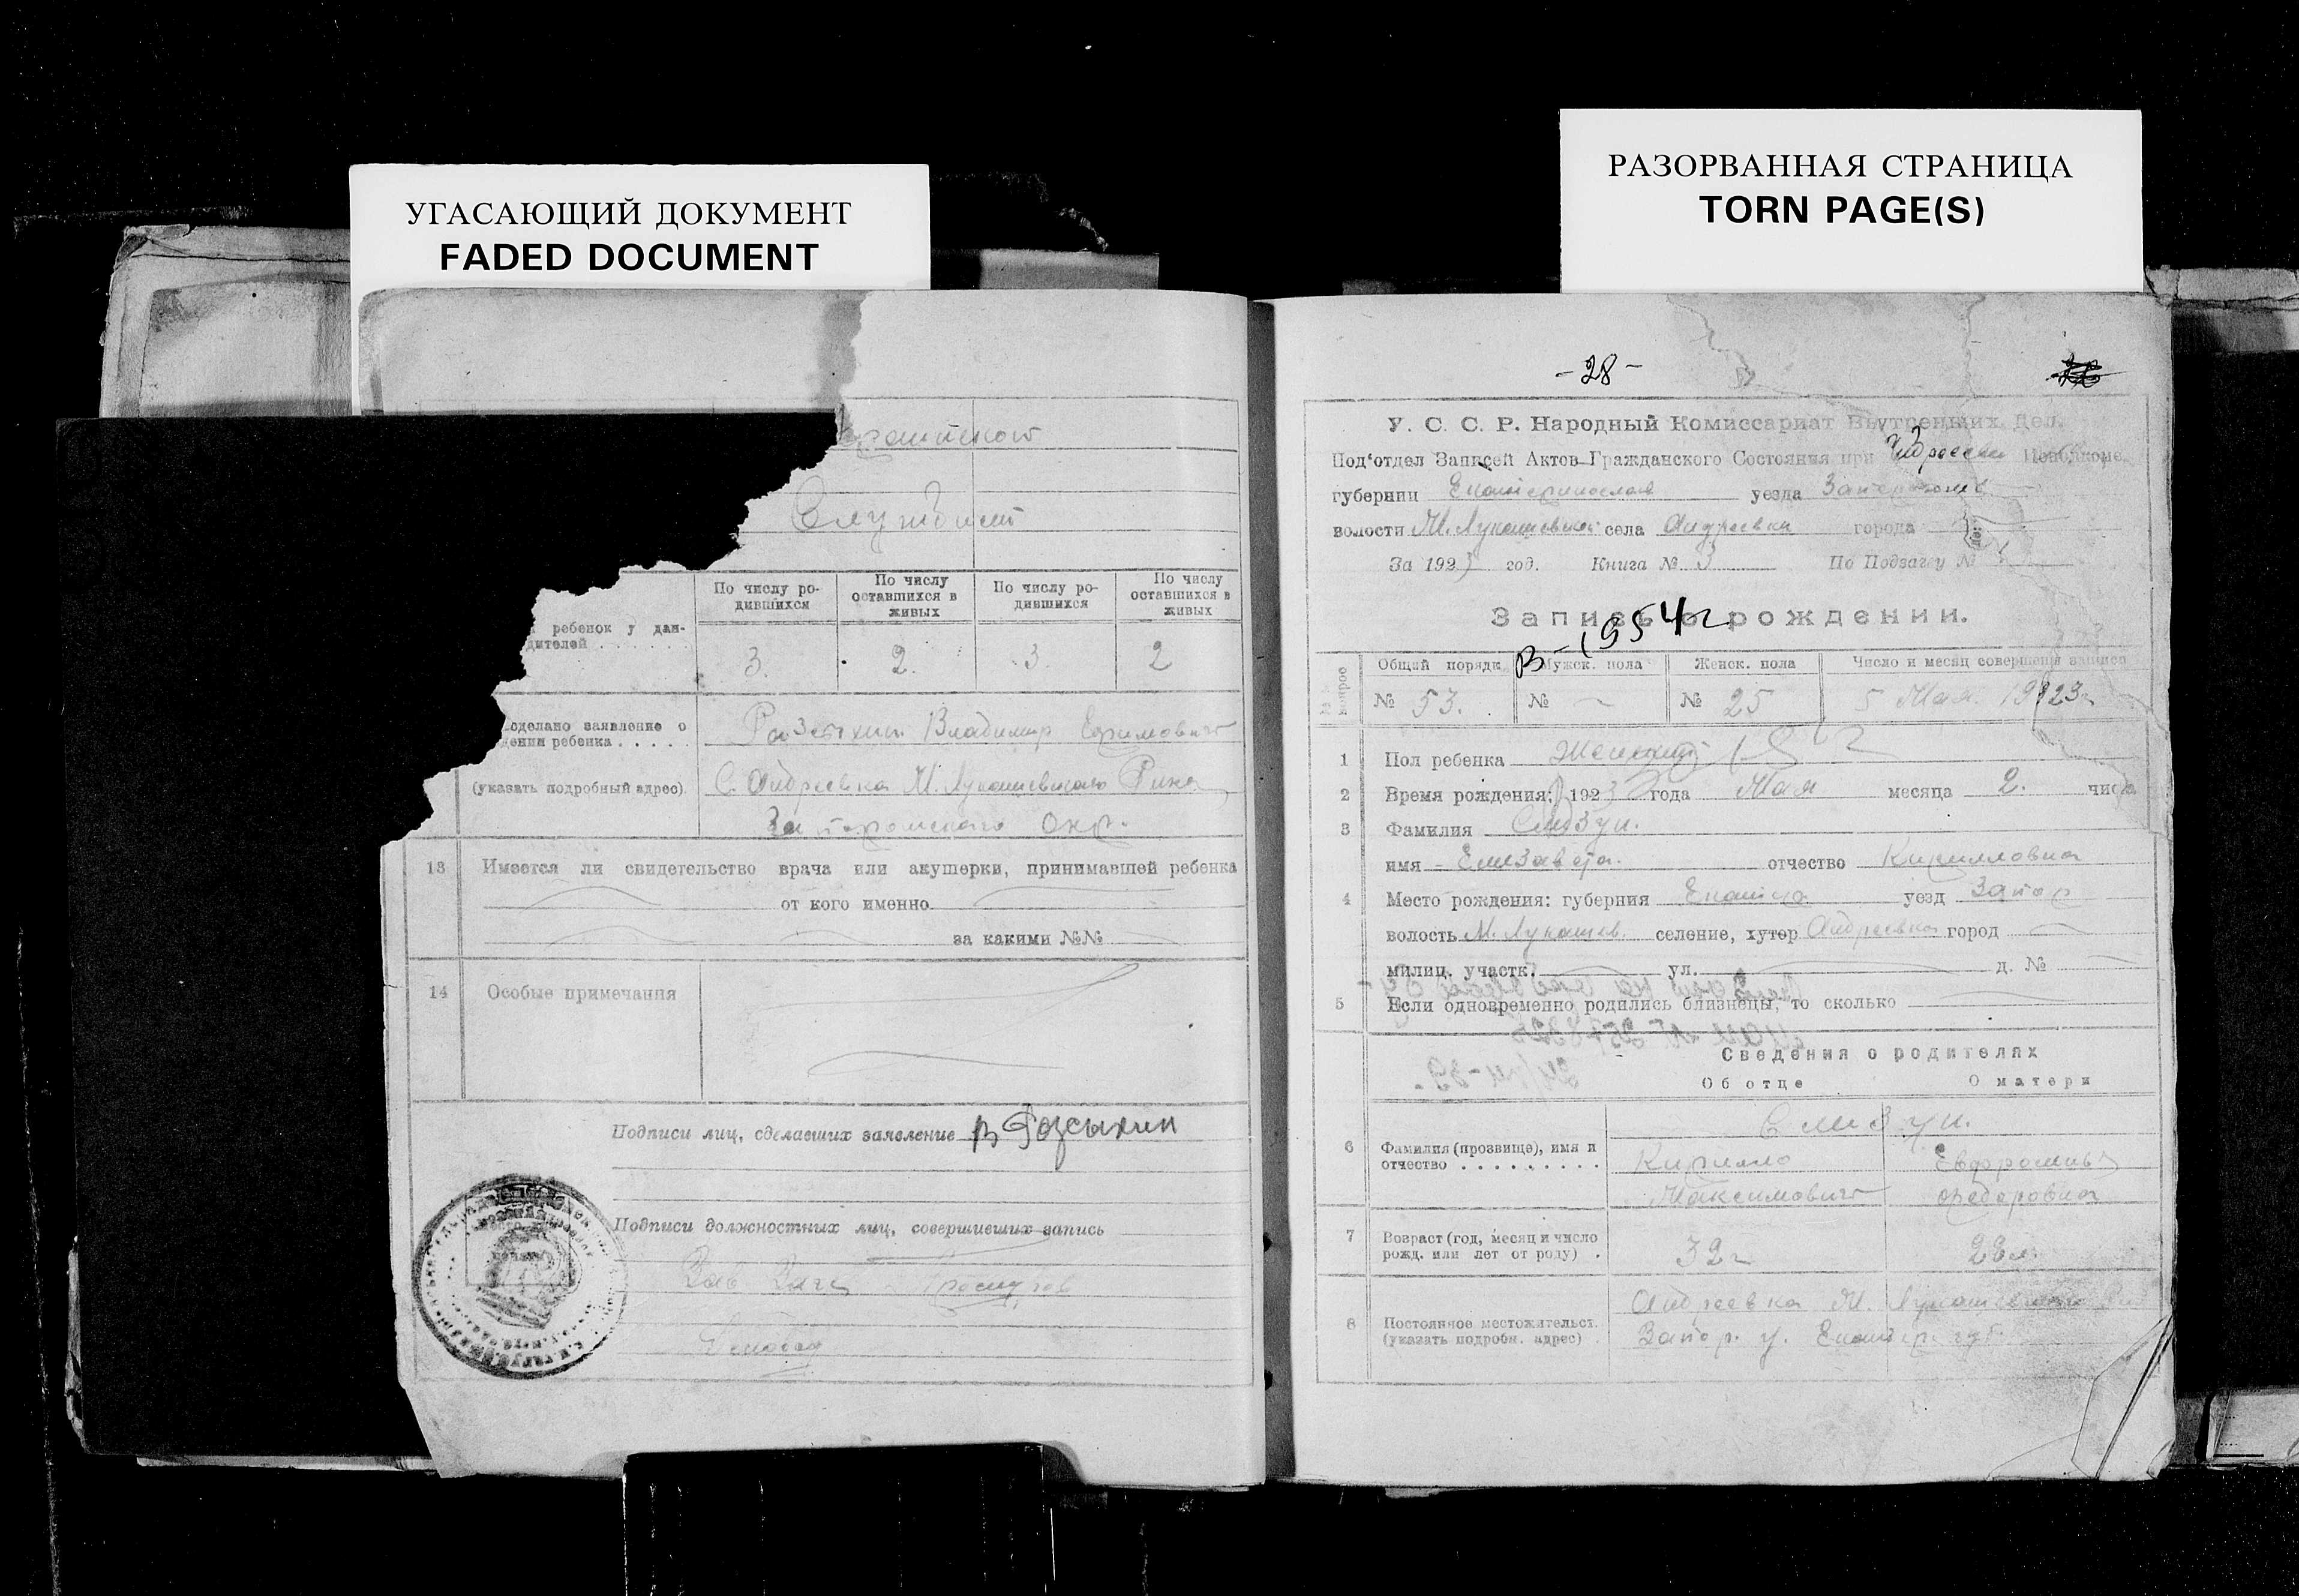 УГАСАЮЩИЙ ДОКУМЕНТ
FADED DOCUMENT
РАЗОРВАННАЯ СТРАНИЦА
TORN PAGE(S)
Служащий
По числу ро-
дившихся
По числу
оставшихся в
живых
По числу ро-
дившихся
По числу
оставшихся в
живых
ребенок у дан-
дителей
3. 2. 3. 2
сделано заявление о
дении ребенка
Владимир Ефимович
(указать подробный адрес). С. Андреевка М. Лукашевского
Запорожского Окр.
13 Имеется ли свидетельство врача или акушерки, принимавшей ребенка
от кого именно
за какими №№
14 Особые примечания
Подписи лиц, сделавших заявление В Розсыхин
Подписи должностных лиц, совершивших запись
Зав
-28-
У. С. С. Р. Народный Комиссариат Внутренних Дел.
Под'отдел Записей Актов Гражданского Состояния при
губернии уезда
волости М. Лукашевской села Андреевка города
За 1923 год. Книга № 3 По Подзагсу №
Запись о рождении.
В-1954г
Общий порядк. Мужск. пола Женск. пола Число и месяц совершения записи
№ 53. № № 25 5 Мая 1923г
1 Пол ребенка Женский
2 Время рождения: 1923 года Мая месяца 2. числа
3 Фамилия Слизун.
имя Елизавета. отчество Кирилловна
4 Место рождения: губерния уезд Запор
волость М. Лукашев. селение, хутор Андреевка город
милиц. участк. ул. д. №
5 Если одновременно родились близнецы, то сколько
Сведения о родителях
Об отце О матери
Слизун.
6 Фамилия (прозвище), имя и
отчество
Кирилло
Максимович
Евфросинья
Федоровна
7 Возраст (год, месяц и число
рожд. или лет от роду)
32г
8 Постоянное местожительст.
(указать подробн. адрес)
Андреевка М. Лукашевского
Запор. у. Екатер. губ.